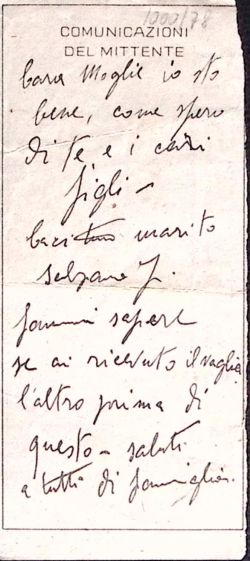 1000/78
COMUNICAZIONI
DEL MITTENTE
Cara Moglie io sto
bene, come spero
di te, e i cari
figli -
baci tuo marito
fammi sapere
se ai ricevuto il vaglia
l'altro prima di
questo - saluti
a tutti di famiglia.